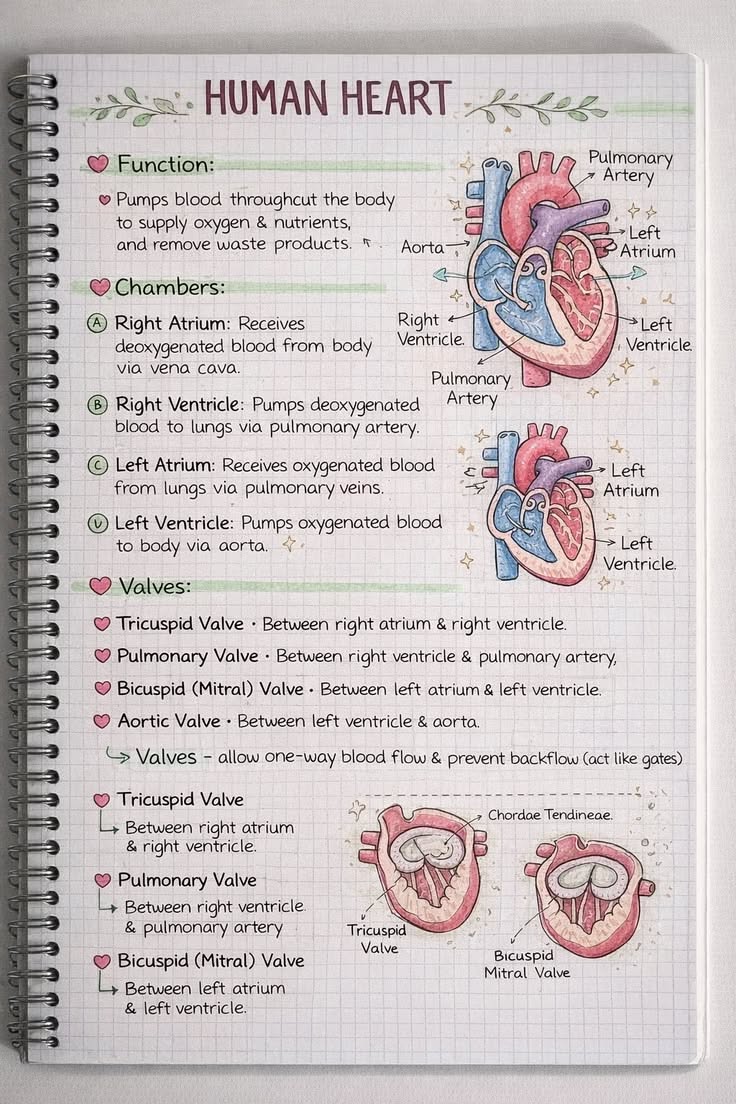 HUMAN HEART
Function:
Pumps blood throughcut the body
to supply oxygen & nutrients,
and remove waste products.
Pulmonary
Artery
Aorta
Left
Atrium
Right
Ventricle.
Left
Ventricle.
Pulmonary
Artery
Chambers:
A Right Atrium: Receives
deoxygenated blood from body
via vena cava.
B Right Ventricle: Pumps deoxygenated
blood to lungs via pulmonary artery.
C Left Atrium: Receives oxygenated blood
from lungs via pulmonary veins.
U Left Ventricle: Pumps oxygenated blood
to body via aorta.
Left
Atrium
Left
Ventricle.
Valves:
Tricuspid Valve · Between right atrium & right ventricle.
Pulmonary Valve · Between right ventricle & pulmonary artery,
Bicuspid (Mitral) Valve · Between left atrium & left ventricle.
Aortic Valve · Between left ventricle & aorta.
Valves – allow one-way blood flow & prevent backflow (act like gates)
Tricuspid Valve
Between right atrium
& right ventricle.
Pulmonary Valve
Between right ventricle
& pulmonary artery
Bicuspid (Mitral) Valve
Between left atrium
& left ventricle.
Chordae Tendineae.
Tricuspid
Valve
Bicuspid
Mitral Valve